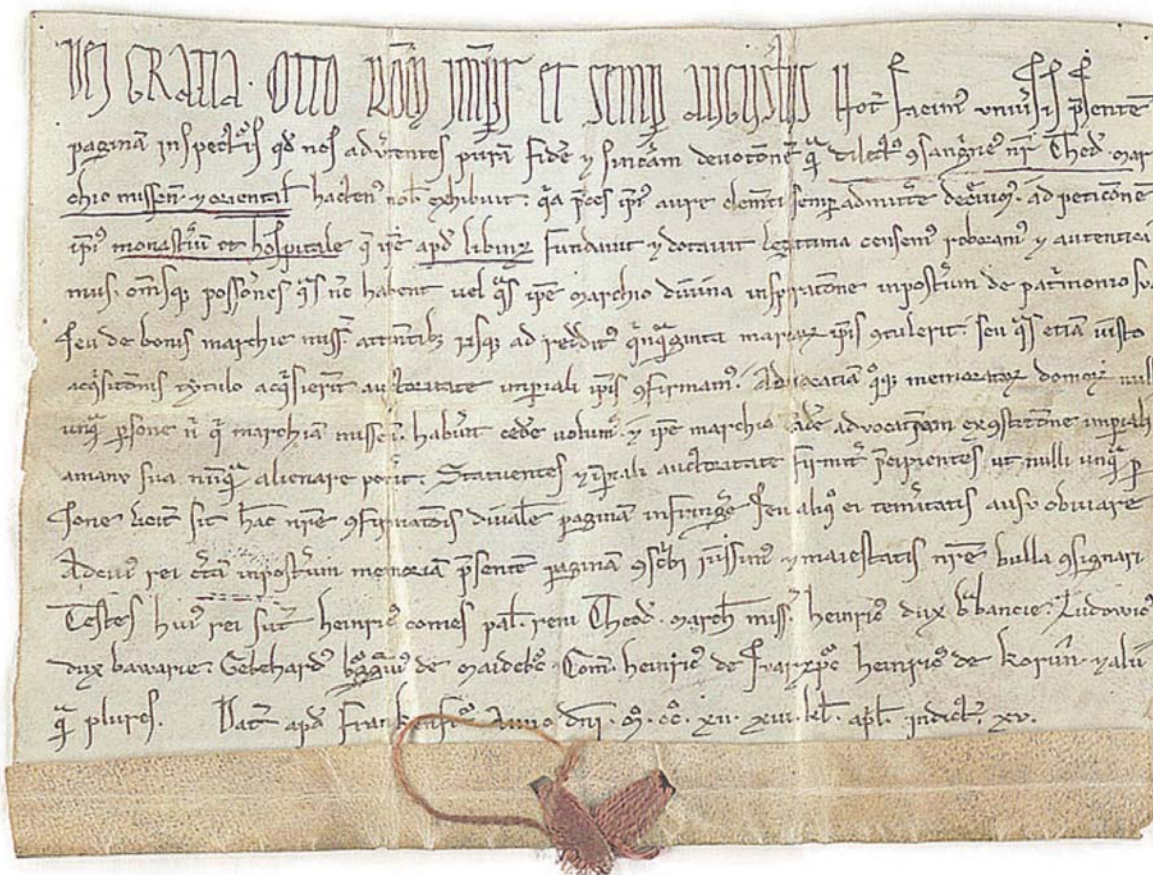 DEI GRATIA · OTTO ROM IMPR ET SEMP AUGUSTUS Not facim univsis psentē
paginā inspectis qd nos advtentes purā fidē ⁊ sincām devotōnē quā dilect ꝯsangine nr Theod · mar
chio missen ⁊ oriental hacten nob exhibuit · preces ipi aure clementi semp admitte · ad peticōnē
ipi monastium et hospitale q ipe apd libuiz fundavit ⁊ dotavit legittima censem roboram ⁊ autentica
mus · omsqꝫ possōnes qs nc habent vel qs ipe marchio divina inspiratōne inpostum de patmonio su
seu de bonis marchie miss attinētibꝫ usqꝫ ad reddit qnqginta marcaꝝ ipis ꝯtulerit · seu qs etiā iusto
acqsitōnis tytulo acqsierit auctoritate impiali ipis ꝯfirmam · Advocatiā qoqꝫ memoratoꝝ domoꝝ null
unq psone n q marchiam missen · habuit cedē volum · ⁊ ipe marchio eādē advocatiam ex ꝯstitōne impiali
a manu sua nunq alienare potit · Statuentes ⁊ impiali auctoritate firmit pcipientes ut nulli unq p
sone licit sit hāc nre ꝯfirmatōis divalē paginā infringe seu aliq ei temitatis ausu obviare
Ad cui rei ctā inpostum memoriā psentē paginā ꝯscbi iussim ⁊ maiestatis nre bulla ꝯsignari
Testes hui rei sut heinric comes pal · reni Theod · march miss · heinric dux bbancie · Ludowic
dux bawarie · Gebehard de maidebc · Com · heinric de heinric de ⁊ alii
q plures · Dat apd Frankenf Anno dni · m̊ · cc̊ · xii · xiii · kl · apl · indict · xv ·